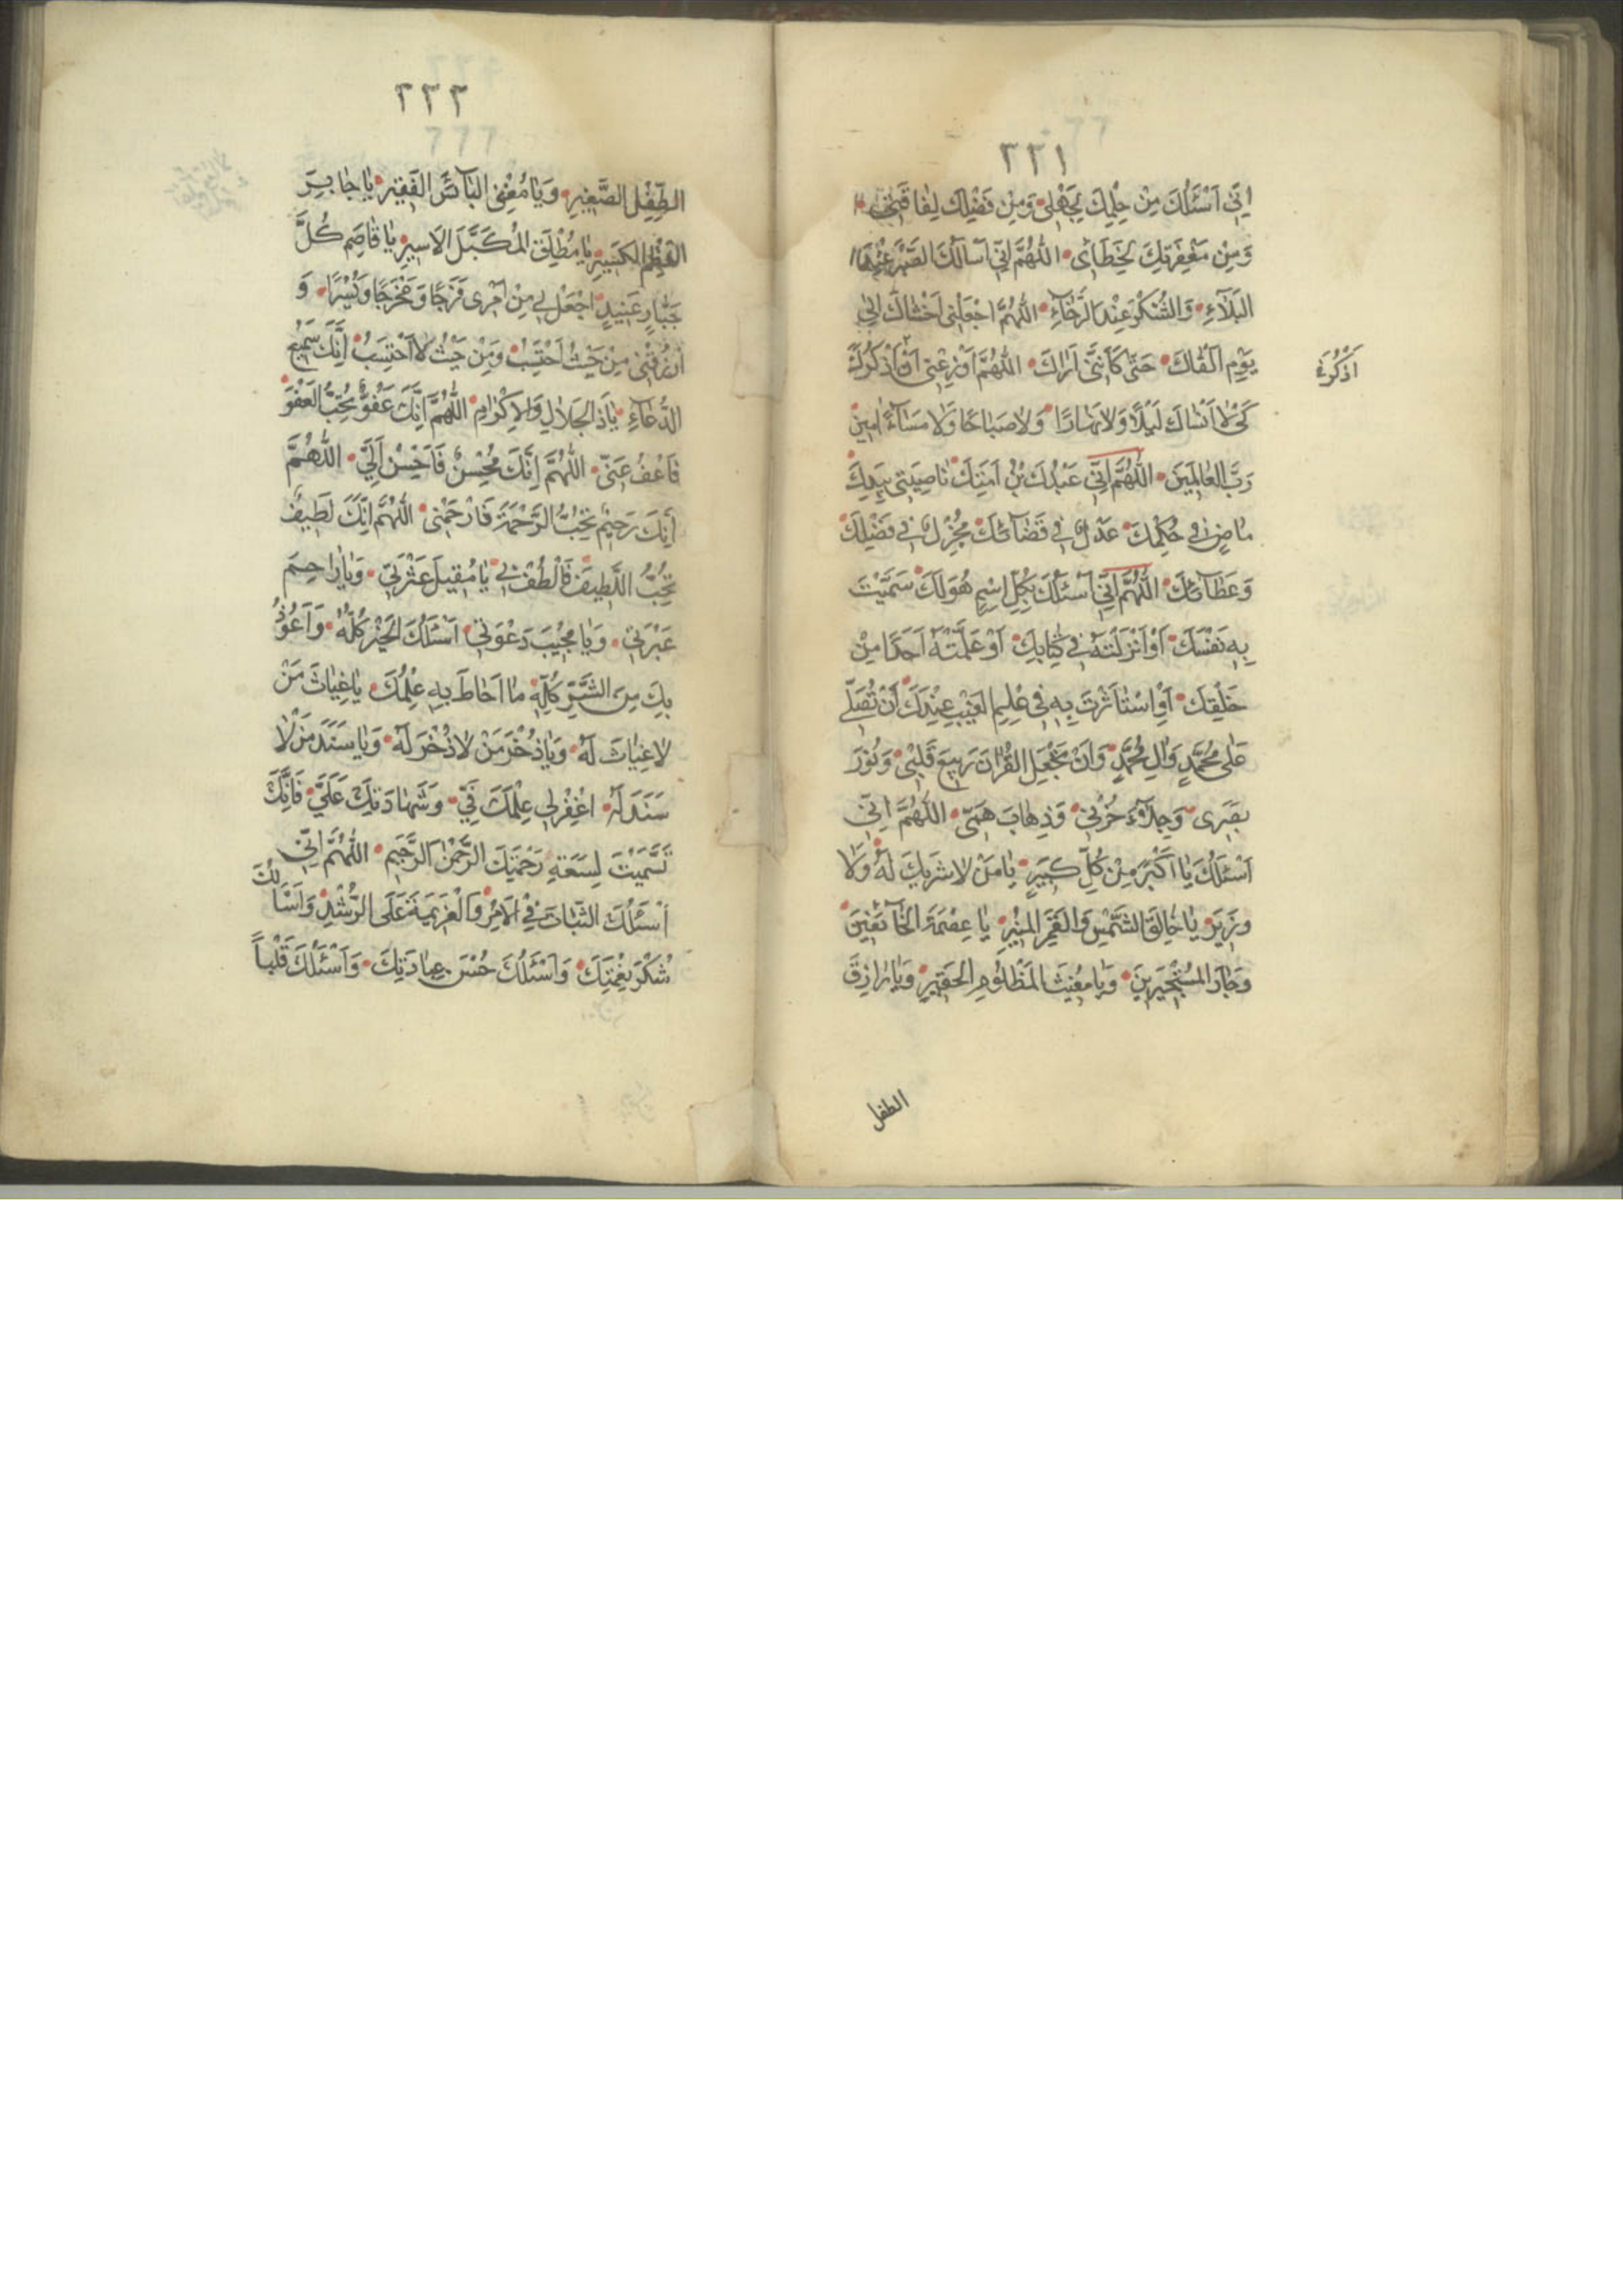 ٢٢١
اِنّي اَسْئَلُكَ مِنْ حِلْمِكَ لِجَهْلِى وَمِنْ فَضْلِكَ لِفَاقَتِى
وَمِنْ مَغْفِرَتِكَ لِخَطَاىَ اللّٰهُمَّ اِنّي اَسْالُكَ الصَّبْرَ عِنْدَ
البَلَآءِ وَالشُّكْرَ عِنْدَ الرَّخَآءِ اللّٰهُمَّ اجْعَلْنِى اَخْشَاكَ اِلى
يَوْمِ اَلْقَاكَ حَتّى كَاَنَّنِى اَرَاكَ اللّٰهُمَّ اَوْزِعْنِى اَنْ اَذْكُرَكَ
اَذْكُرَكَ
كَىْ لَا اَنْسَاكَ لَيْلًا وَلَا نَهَارًا وَلَا صَبَاحًا وَلَا مَسَآءً اٰمِينَ
رَبَّ العَالَمِينَ اللّٰهُمَّ اِنّي عَبْدُكَ بْنُ اَمَتِكَ نَاصِيَتِى بِيَدِكَ
مَاضٍ فِي حُكْمِكَ عَدْلٌ فِي قَضَآئِكَ مُجْزِلٌ فِي فَضْلِكَ
وَعَطَآئِكَ اللّٰهُمَّ اِنّي اَسْئَلُكَ بِكُلِّ اسْمٍ هُوَ لَكَ سَمَّيْتَ
بِهِ نَفْسَكَ اَوْ اَنْزَلْتَهُ فِي كِتَابِكَ اَوْ عَلَّمْتَهُ اَحَدًا مِنْ
خَلْقِكَ اَوِ اسْتَاْثَرْتَ بِهِ فِى عِلْمِ الغَيْبِ عِنْدَكَ اَنْ تُصَلِّىَ
عَلى مُحَمَّدٍ وَاٰلِ مُحَمَّدٍ وَاَنْ تَجْعَلَ القُرْاٰنَ رَبِيعَ قَلْبِى وَنُوْرَ
بَصَرِى وَجِلَآءَ حُزْنِى وَذِهَابَ هَمّى اللّٰهُمَّ اِنّي
اَسْئَلُكَ يَا اَكْبَرَ مِنْ كُلِّ كَبِيرٍ يَا مَنْ لَا شَرِيكَ لَهُ وَلَا
وَزِيرَ يَا خَالِقَ الشَّمْسِ وَالقَمَرِ المُنِيْرِ يَا عِصْمَةَ الخَآئِفِيْنَ
وَجَارَ المُسْتَجِيرِينَ وَيَا مُغِيثَ المَظْلُوْمِ الحَقِيْرِ وَيَا رَازِقَ
الطفل
٢٢٢
الطِّفْلِ الصَّغِيْرِ وَيَا مُغْنِىَ البَآئِسِ الفَقِيْرِ يَا جَابِرَ
العَظْمِ الكَسِيْرِ يَا مُطْلِقَ المُكَبَّلِ الاَسِيرِ يَا قَاصِمَ كُلَّ
جَبَّارٍ عَنِيدٍ اجْعَلْ لِي مِنْ اَمْرِى فَرَجًا وَمَخْرَجًا وَيُسْرًا وَ
ارْزُقْنِى مِنْ حَيْثُ اَحْتَسِبُ وَمِنْ حَيْثُ لَا اَحْتَسِبُ اِنَّكَ سَمِيْعُ
الدُّعَآءِ يَا ذَا الجَلَالِ وَالاِكْرَامِ اللّٰهُمَّ اِنَّكَ عَفُوٌّ تُحِبُّ العَفْوَ
فَاعْفُ عَنّى اللّٰهُمَّ اِنَّكَ مُحْسِنٌ فَاَحْسِنْ اِلَيَّ اللّٰهُمَّ
اِنَّكَ رَحِيْمٌ تُحِبُّ الرَّحْمَةَ فَارْحَمْنِى اللّٰهُمَّ اِنَّكَ لَطِيفٌ
تُحِبُّ اللَّطِيفَ فَالْطُفْ بِي يَا مُقِيلَ عَثْرَتِي وَيَا رَاحِمَ
عَبْرَتِي وَيَا مُجِيْبَ دَعْوَتِي اَسْئَلُكَ الخَيْرَ كُلَّهُ وَاَعُوْذُ
بِكَ مِنَ الشَّرِّ كُلِّهِ مَا اَحَاطَ بِهِ عِلْمُكَ يَا غِيَاثَ مَنْ
لَا غِيَاثَ لَهُ وَيَا ذُخْرَ مَنْ لَا ذُخْرَ لَهُ وَيَا سَنَدَ مَنْ لَا
سَنَدَ لَهُ اغْفِرْ لِي عِلْمَكَ فِيَّ وَشَهَادَتِكَ عَلَيَّ فَاِنَّكَ
تَسَمَّيْتَ لِسَعَةِ رَحْمَتِكَ الرَّحْمٰنَ الرَّحِيْمَ اللّٰهُمَّ اِنّي
اَسْئَلُكَ الثَّبَاتَ فِي الاَمْرِ وَالْعَزِيمَةَ عَلَى الرُّشْدِ وَاَسْاَلُكَ
شُكْرَ نِعْمَتِكَ وَاَسْئَلُكَ حُسْنَ عِبَادَتِكَ وَاَسْئَلُكَ قَلْبًا